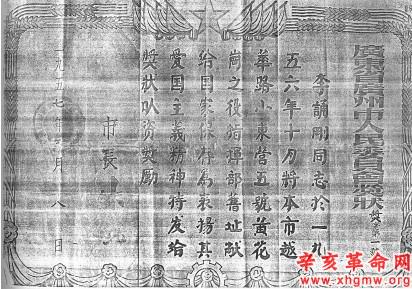 廣東省廣州市人民委員會獎狀
李韻剛同志於一九
五六年十月將本市越
華路小東營五號黃花
崗之役指揮部舊址獻
給国家保存為表揚其
愛国主義精神特发给
獎狀以资奖励
市長
一九五七年 月八日
辛亥革命网
www.xhgmw.org